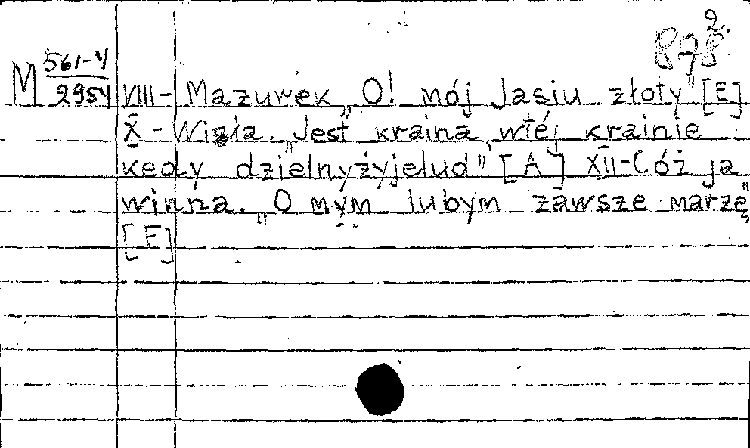 2.
878
M 561-Y
2954 VIII - Mazurek „O! mój Jasiu złoty" [E]
X - Wisła. „Jest kraina, w tej krainie
kędy dzielny żyje lud" [A] XII - Cóż ja
winna. „O mym lubym zawsze marzę"
[E]